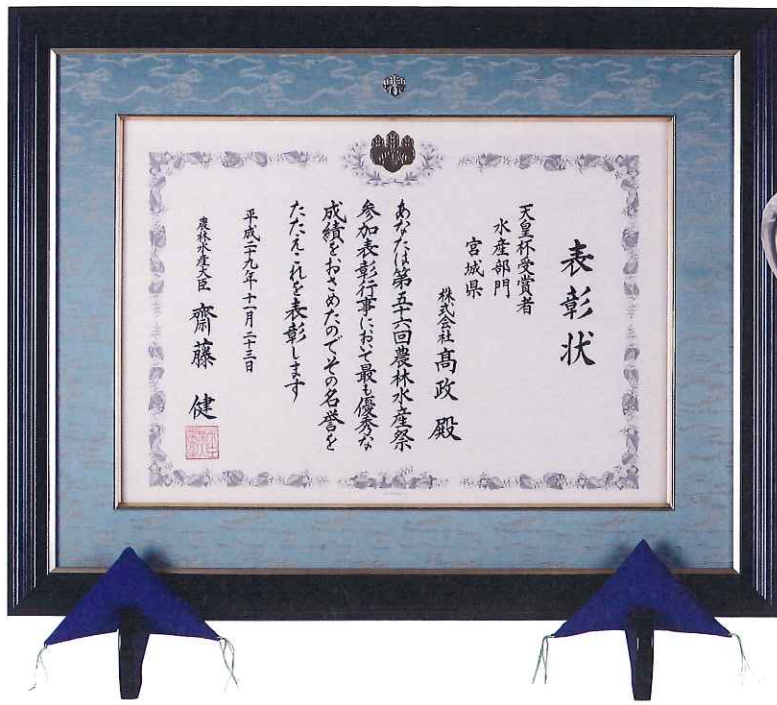 表彰状
天皇杯受賞者
水産部門
宮城県
株式会社 髙政 殿
あなたは第五十六回農林水産祭
参加表彰行事において最も優秀な
成績をおさめたのでその名誉を
たたえこれを表彰します
平成二十九年十一月二十三日
農林水産大臣 齋藤 健